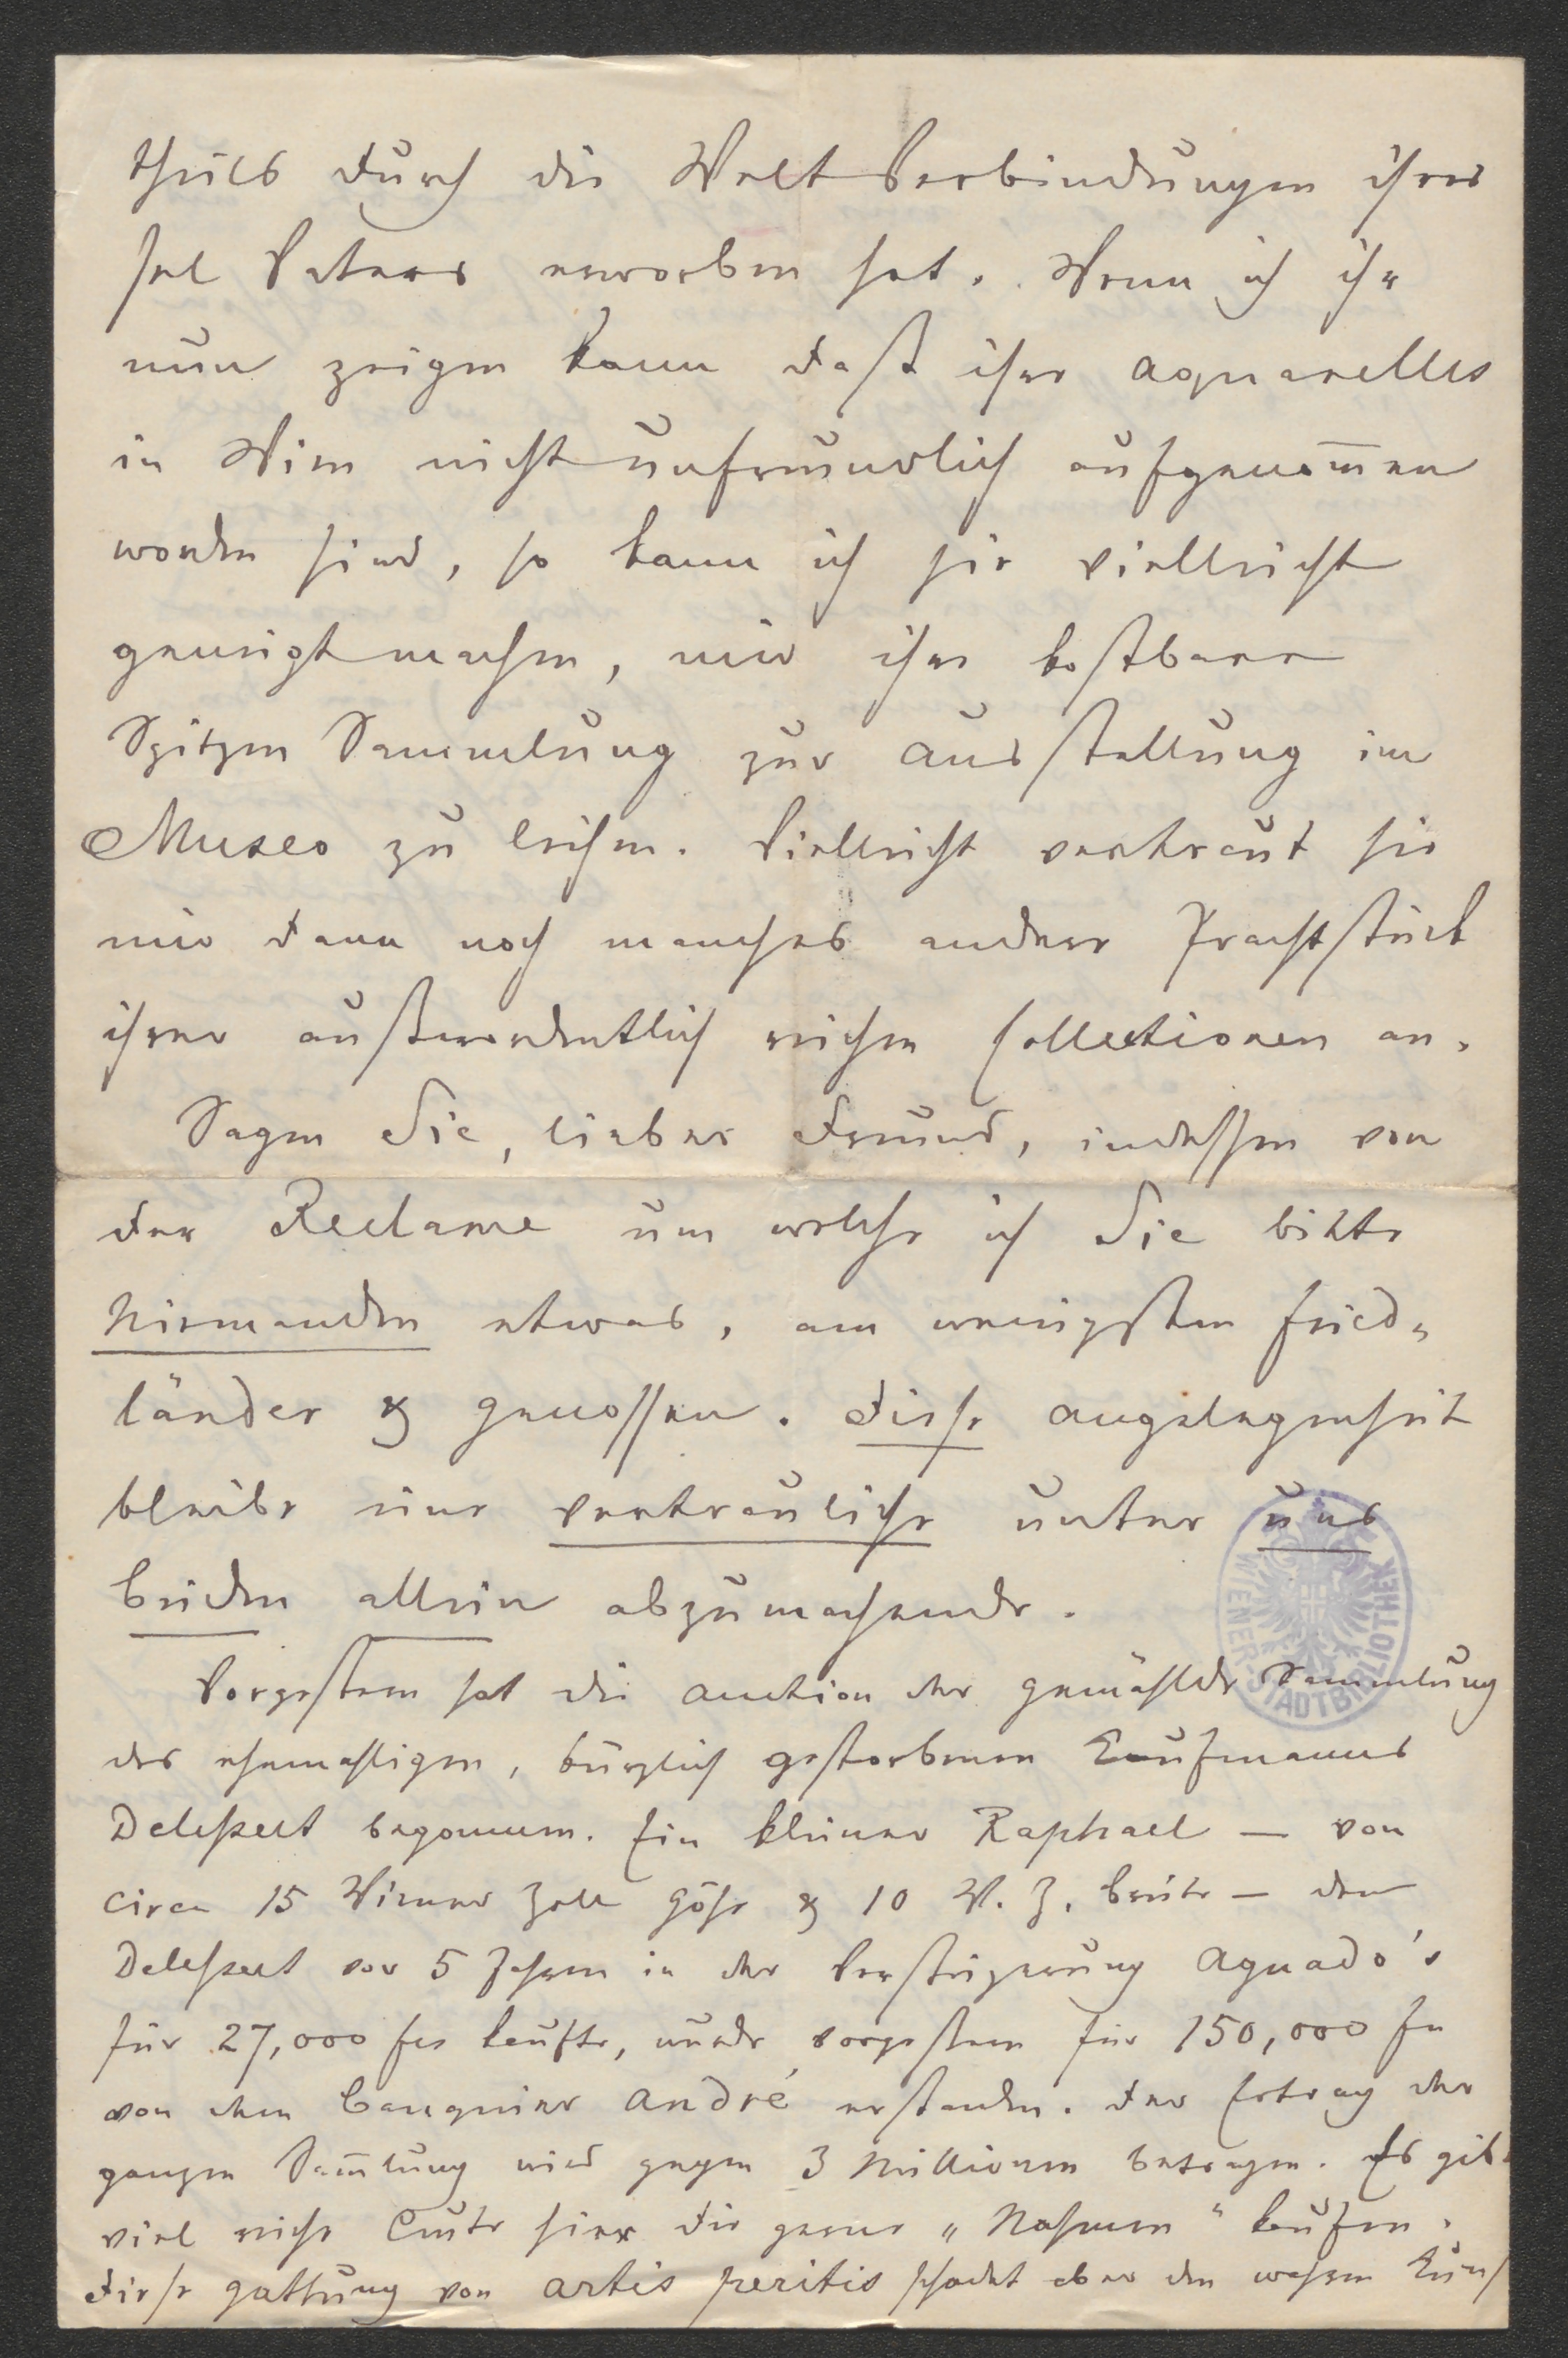 theils durch die Welt Verbindungen ihres
sel Vaters erworben hat. Wenn ich ihr
nun zeigen kann daß ihre aquarelles
in Wien nicht unfreundlich aufgenom̅en
worden sind, so kann ich sie vielleicht
geneigt machen, mir ihre kostbare
Spitzen Sammlung zur Ausstellung im
Museo zu leihen. Vielleicht vertraut sie
mir dann noch manches andere Prachtstück
ihrer außerordentlich reichen Collectionen an.
Sagen Sie, lieber Freund, indessen von
der Reclame um welche ich Sie bitte
Niemanden etwas, am wenigsten Fried„
länder & Genossen. Diese Angelegenheit
bleibe eine vertrauliche unter uns
beiden allein abzumachende.
Vorgestern hat die Auction der Gemählde Sammlung
des ehemahligen, kürzlich gestorbenen Kaufmanns
Delessert begonnen. Ein kleiner Raphael — von
circa 15 Wiener Zoll Höhe & 10 W. Z. Breite — den
Delessert vor 5 Jahren in der Versteigerung Aguado's
für 27,000 fcs kaufte, wurde vorgestern für 150,000 fcs
von dem Banquier André erstanden. Der Ertrag der
ganzen Sam̅lung wird gegen 3 Millionen betragen. Es gibt
viel reiche Leute hier die gerne „Nahmen" kaufen.
Diese Gattung von artis peritis schadet aber den wahren Kunst
WIENER-STADTBIBLIOTHEK